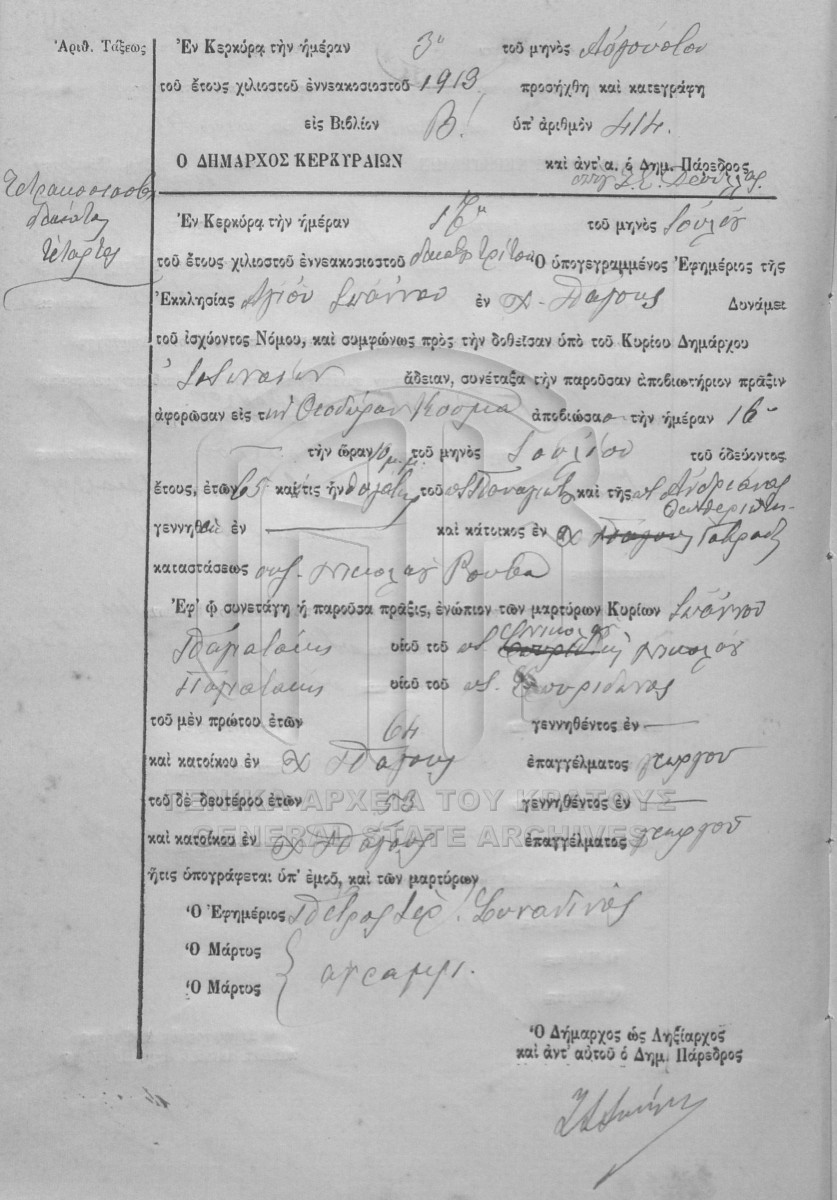 Ἀριθ. Τάξεως
Ἐν Κερκύρᾳ τὴν ἡμέραν 3ῃ τοῦ μηνὸς Αὐγούστου
τοῦ ἔτους χιλιοστοῦ ἐννεακοσιοστοῦ 1913 προσήχθη καὶ κατεγράφη
εἰς Βιβλίον Β! ὑπ' ἀριθμὸν 414.
Ὁ ΔΗΜΑΡΧΟΣ ΚΕΡΚΥΡΑΙΩΝ καὶ ἀντ' α. ὁ Δημ. Πάρεδρος
Τετρακοσιοστὴ
δεκάτη
τετάρτη
Ἐν Κερκύρᾳ τὴν ἡμέραν τοῦ μηνὸς Ἰουλίου
τοῦ ἔτους χιλιοστοῦ ἐννεακοσιοστοῦ δεκάτου τρίτου Ὁ ὑπογεγραμμένος Ἐφημέριος τῆς
Ἐκκλησίας Ἁγίου Ἰωάννου ἐν χ. Πάγους Δυνάμει
τοῦ ἰσχύοντος Νόμου, καὶ συμφώνως πρὸς τὴν δοθεῖσαν ὑπὸ τοῦ Κυρίου Δημάρχου
ἄδειαν, συνέταξα τὴν παροῦσαν ἀποβιωτήριον πρᾶξιν
ἀφορῶσαν εἰς τὴν Θεοδώραν Κοσμᾶ ἀποβιώσασ τὴν ἡμέραν 16
τὴν ὥραν 10 μ.μ. τοῦ μηνὸς Ἰουλίου τοῦ ὁδεύοντος
ἔτους, ἐτῶν 65 καὶ τις ἦν θυγάτηρ τοῦ ποτ Παναγιώτη καὶ τῆς ποτ Ἀνδριάνας
γεννηθ ἐν καὶ κάτοικος ἐν χ Πάγους
καταστάσεως συζ. Νικολάου
Ἐφ' ᾧ συνετάγη ἡ παροῦσα πρᾶξις, ἐνώπιον τῶν μαρτύρων Κυρίων Ἰωάννου
υἱοῦ τοῦ ποτ Νικολάου
υἱοῦ τοῦ ποτ Σπυρίδωνος
τοῦ μὲν πρώτου ἐτῶν 64 γεννηθέντος ἐν
καὶ κατοίκου ἐν χ Πάγους ἐπαγγέλματος γεωργοῦ
τοῦ δὲ δευτέρου ἐτῶν 53 γεννηθέντος ἐν
ΓΕΝΙΚΑ ΑΡΧΕΙΑ ΤΟΥ ΚΡΑΤΟΥΣ
GENERAL STATE ARCHIVES
καὶ κατοίκου ἐν χ Πάγους ἐπαγγέλματος γεωργοῦ
ἥτις ὑπογράφεται ὑπ' ἐμοῦ, καὶ τῶν μαρτύρων
Ὁ Ἐφημέριος Πέτρος ἱερ. Συναδινὸς
Ὁ Μάρτυς
ἀγράμμ.
Ὁ Μάρτυς
Ὁ Δήμαρχος ὡς Ληξίαρχος
καὶ ἀντ' αὐτοῦ ὁ Δημ. Πάρεδρος